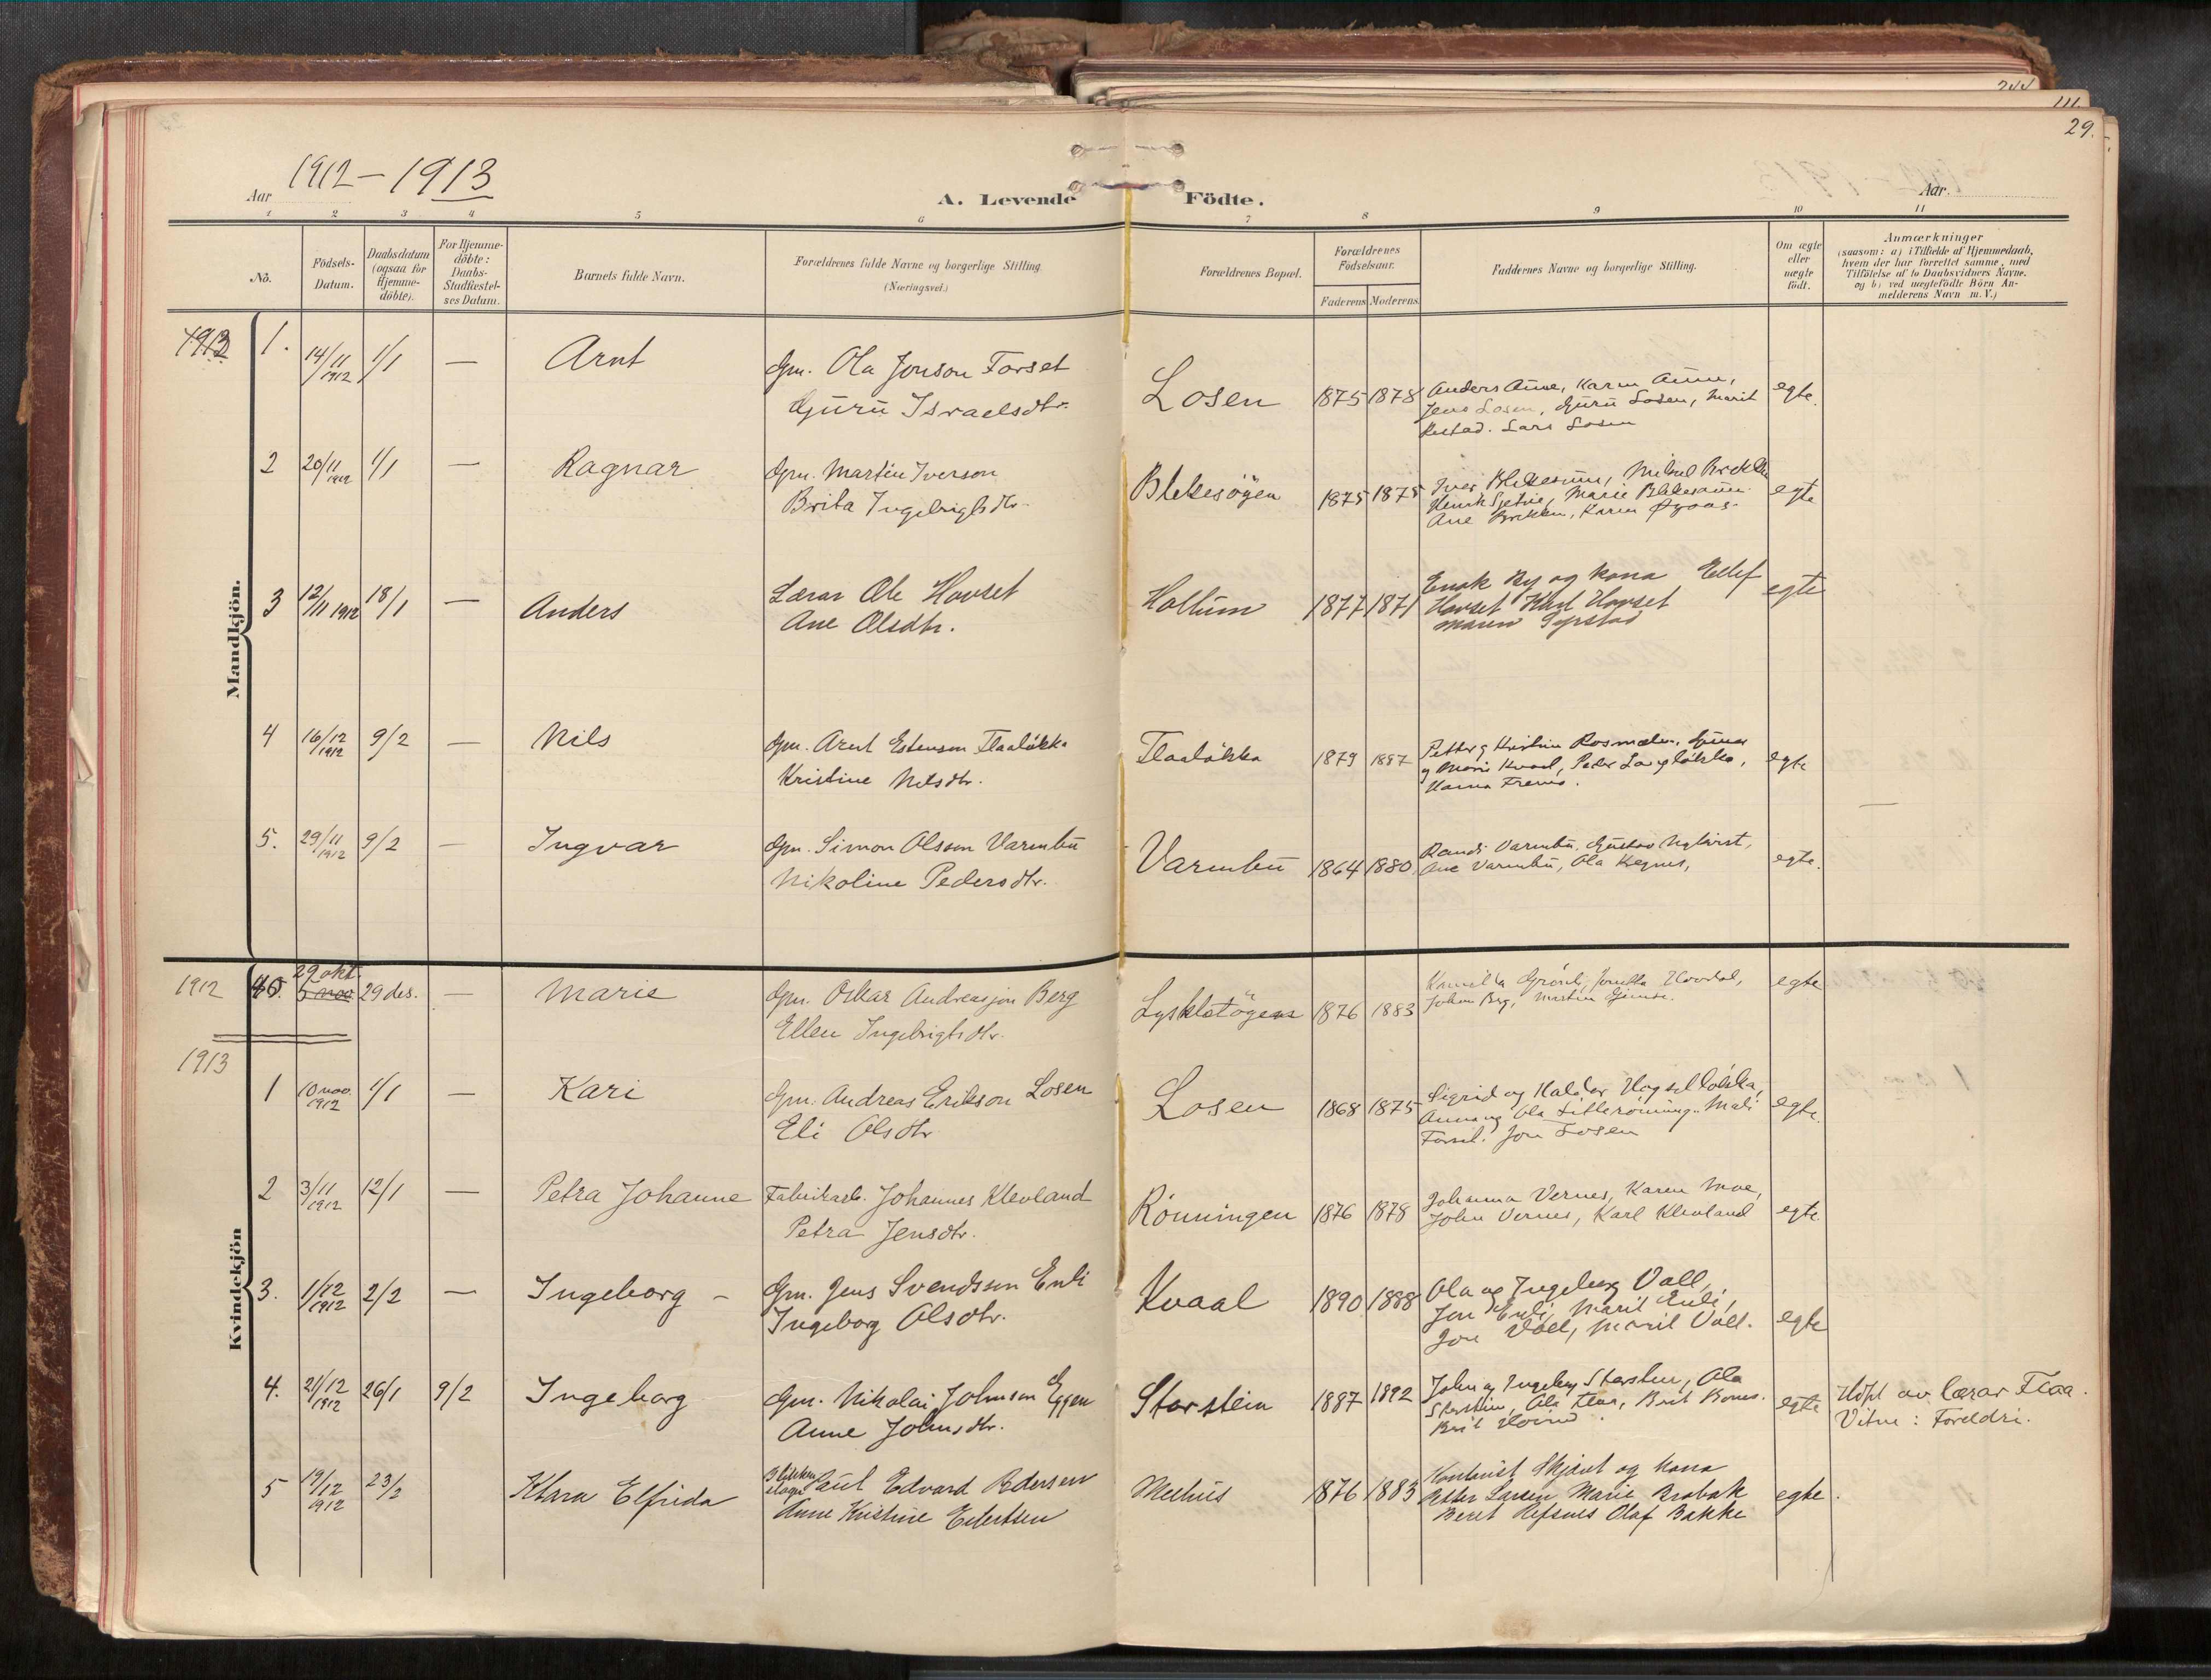 244
111.
29.
Aar 1912 – 1913
A. Levende Födte.
Aar.
1 2 3 4 5 6 7 8 9 10 11
No.
Födsels-
Datum.
Daabsdatum
(ogsaa for
Hjemme-
döbte).
For Hjemme-
döbte:
Daabs-
Stadfæstel-
ses Datum.
Barnets fulde Navn.
Forældrenes fulde Navne og borgerlige Stilling
(Næringsvei.)
Forældrenes Bopæl.
Forældrenes
Födselsaar.
Faderens Moderens
Faddernes Navne og borgerlige Stilling.
Om ægte
eller
uægte
födt.
Anmærkninger
(saasom: a) i Tilfælde af Hjemmedaab,
hvem der har forrettet samme, med
Tilföielse af to Daabsvidners Navne.
og b) ved uægtefödte Börn An-
melderens Navn m. V.)
Mandkjön.
1913
1. 14/11 1912 1/1 — Arnt
Gm. Ola Jonson Forset
Guru Israelsdtr.
Losen 1875 1878
Anders Aune, Karen Aune,
Jens Losen, Guru Losen, Marit
Lars Losen
egte.
2 20/11 1912 1/1 — Ragnar
Gm. Martin Iverson
Brita Ingebrigtsdtr.
Blekesøyen 1875 1875
Iver Blekesaun, Mikael Brekken
Henrik Marie Blekesaun
Ane Brekken, Karen Øyaas.
egte
3 12/11 1912 18/1 — Anders
Lærar Ole Hovset
Ane Olsdtr.
Hollum 1877 1871
Enok By og kona Ellef
Hovset Karl Hovset
Maren Syrstad
egte
4 16/12 1912 9/2 — Nils
Gm. Arnt Estenson Flaaløkka
Kristine Nilsdtr.
Flaaløkka 1879 1887
Petter og Kristine Rosmælen, Gunar
og Marie Kvaal, Peder Langløkka,
Hanna Fremo.
egte
—
5. 29/11 1912 9/2 — Ingvar
Gm. Simon Olsson Varmbu
Nikoline Pedersdtr.
Varmbu 1864 1880
Randi Varmbu, Gustav Nykvist,
Ane Varmbu, Ola Regnes,
egte.
Kvindekjön
1912 40. 29 okt. 5 nov 29 des. — Marie
Gm. Oskar Andreasson Berg
Ellen Ingebrigtsdtr.
Lyskletøyen 1876 1883
Kamilla Grønli, Jonetta Hovdal,
Johan Berg, Martin Gjimse.
egte
1913
1 10 nov. 1912 1/1 — Kari
Gm. Andreas Erikson Losen
Eli Olsdtr
Losen 1868 1875
Sigrid og Haldor Hogselløkka,
Anna og Ola Litlerønning. Mali
Forset. Jon Losen
egte.
2 3/11 1912 12/1 — Petra Johanne
Fabrikarb. Johannes Klevland
Petra Jensdtr.
Rönningen 1876 1878
Johanna Vernes, Karen Moe,
John Vernes, Karl Klevland
egte
3. 1/12 1912 2/2 — Ingeborg –
Gm. Jens Svendsson Enli
Ingeborg Olsdtr.
Kvaal 1890 1888
Ola og Ingeborg Vall,
Jon Enli, Marit Enli,
Jon Vall, Marit Vall.
egte
4. 21/12 1912 26/1 9/2 Ingeborg
Gm. Nikolai Johnson Eggen
Anne Johnsdtr.
Storstein 1887 1892
John og Ingeborg Storstein, Ola
Storstein, Ola Flaa, Brit Bones.
Brit Hovind
egte
Döpt av lærar Flaa.
Vitne: Foreldri.
5 19/12 1912 23/2 Klara Elfrida
Blikken-
slager Paul Edvard Pedersen
Anne Kristine Eilertsen
Melhus 1876 1883
Kontorist Skjövt og kona
Petter Larsen Marie Brobak
Beret Refsnes Olaf Bakke
egte.